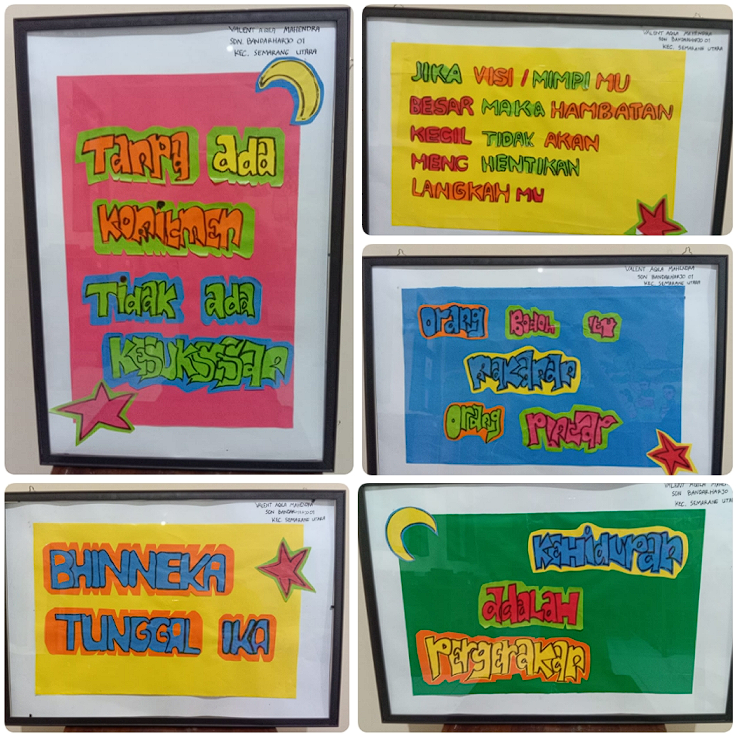 VALENT AQILA MAHENDRA
SDN. BANDARHARJO 01
KEC. SEMARANG UTARA
Tanpa ada
Komitmen
Tidak ada
Kesuksesan
VALENT AQILA MAHENDRA
SDN. BANDARHARJO 01
KEC. SEMARANG UTARA
JIKA VISI / MIMPI MU
BESAR MAKA HAMBATAN
KECIL TIDAK AKAN
MENG HENTIKAN
LANGKAH MU
VALENT AQILA MAHENDRA
SDN. BANDARHARJO 01
KEC. SEMARANG UTARA
Orang Bodoh itu
makanan
Orang pintar
VALENT AQILA MAHENDRA
SDN. BANDARHARJO 01
KEC. SEMARANG UTARA
BHINNEKA
TUNGGAL IKA
VALENT AQILA
SDN BANDARHARJO
KEC. SEMARANG
Kehidupan
adalah
pergerakan